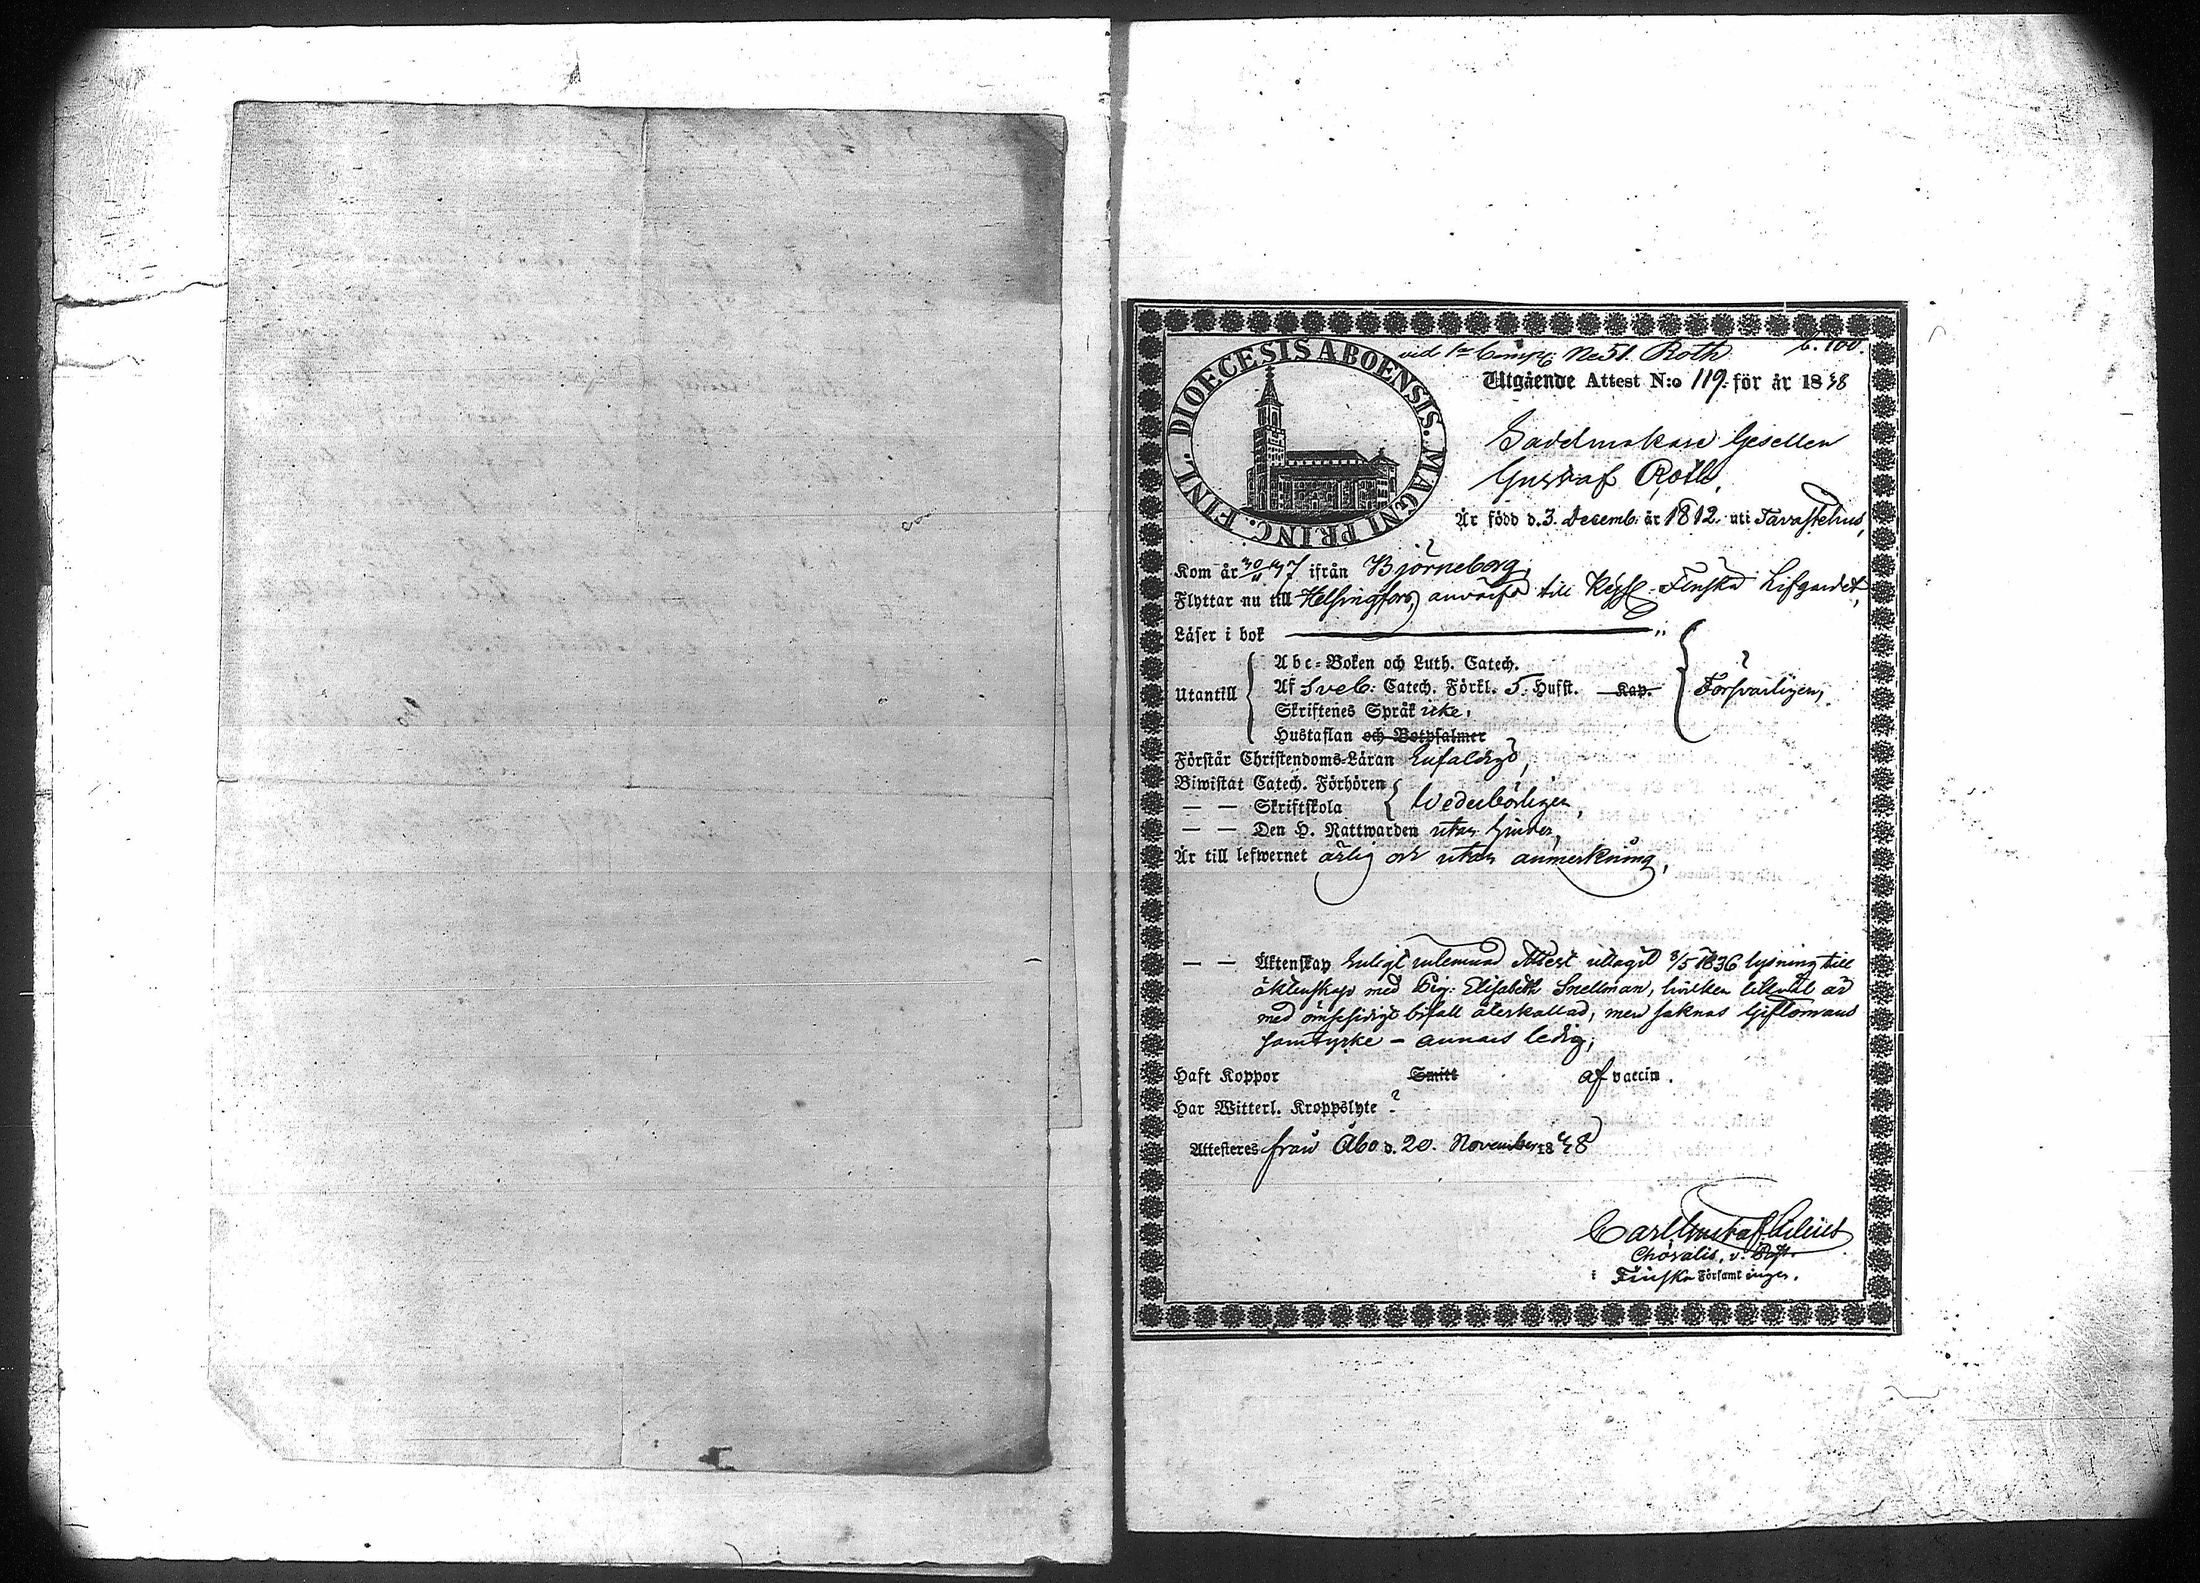 vid 1ª Comp: No 51. Roth b. 100.
DIOECESIS ABOENSIS. MAGNI PRINC. FINL.
Utgående Attest N:o 119. för år 1838
Sadelmakare Gesellen
Gustaf Roth,
Är född d. 3. Decemb. år 1812. uti Tavastehus,
Kom år 30/11 37 ifrån Björneborg,
Flyttar nu till Helsingfors, till Finska Lifgardet,
Läser i bok
Utantill
Abc-Boken och Luth. Catech.
Af Sveb: Catech. Förkl. 5. Hufst. Kap.
Skriftenes Språk icke,
Hustaflan och Botpsalmer
Försvarligen,
Förstår Christendoms-Läran Enfaldigt,
Biwistat Catech. Förhören
— — Skriftskola
Wederbörligen,
— — Den H. Nattwarden utan hinder,
Är till lefwernet ärlig och utan anmerkning,
— — Äktenskap Enligt Attest uttagit 8/5 1836 lysning till
äktenskap med Pig: Elisabeth Snellman, hvilken likväl är
med ömsesidigt bifall återkallad, men saknas Giftomans
samtycke – annars ledig,
Haft Koppor Smitt af vaccin.
Har Witterl. Kroppslyte ?
Attesteras från Åbo d. 20. November 1838
Carl Gustaf
v. Past.
i Finska Församlingen.